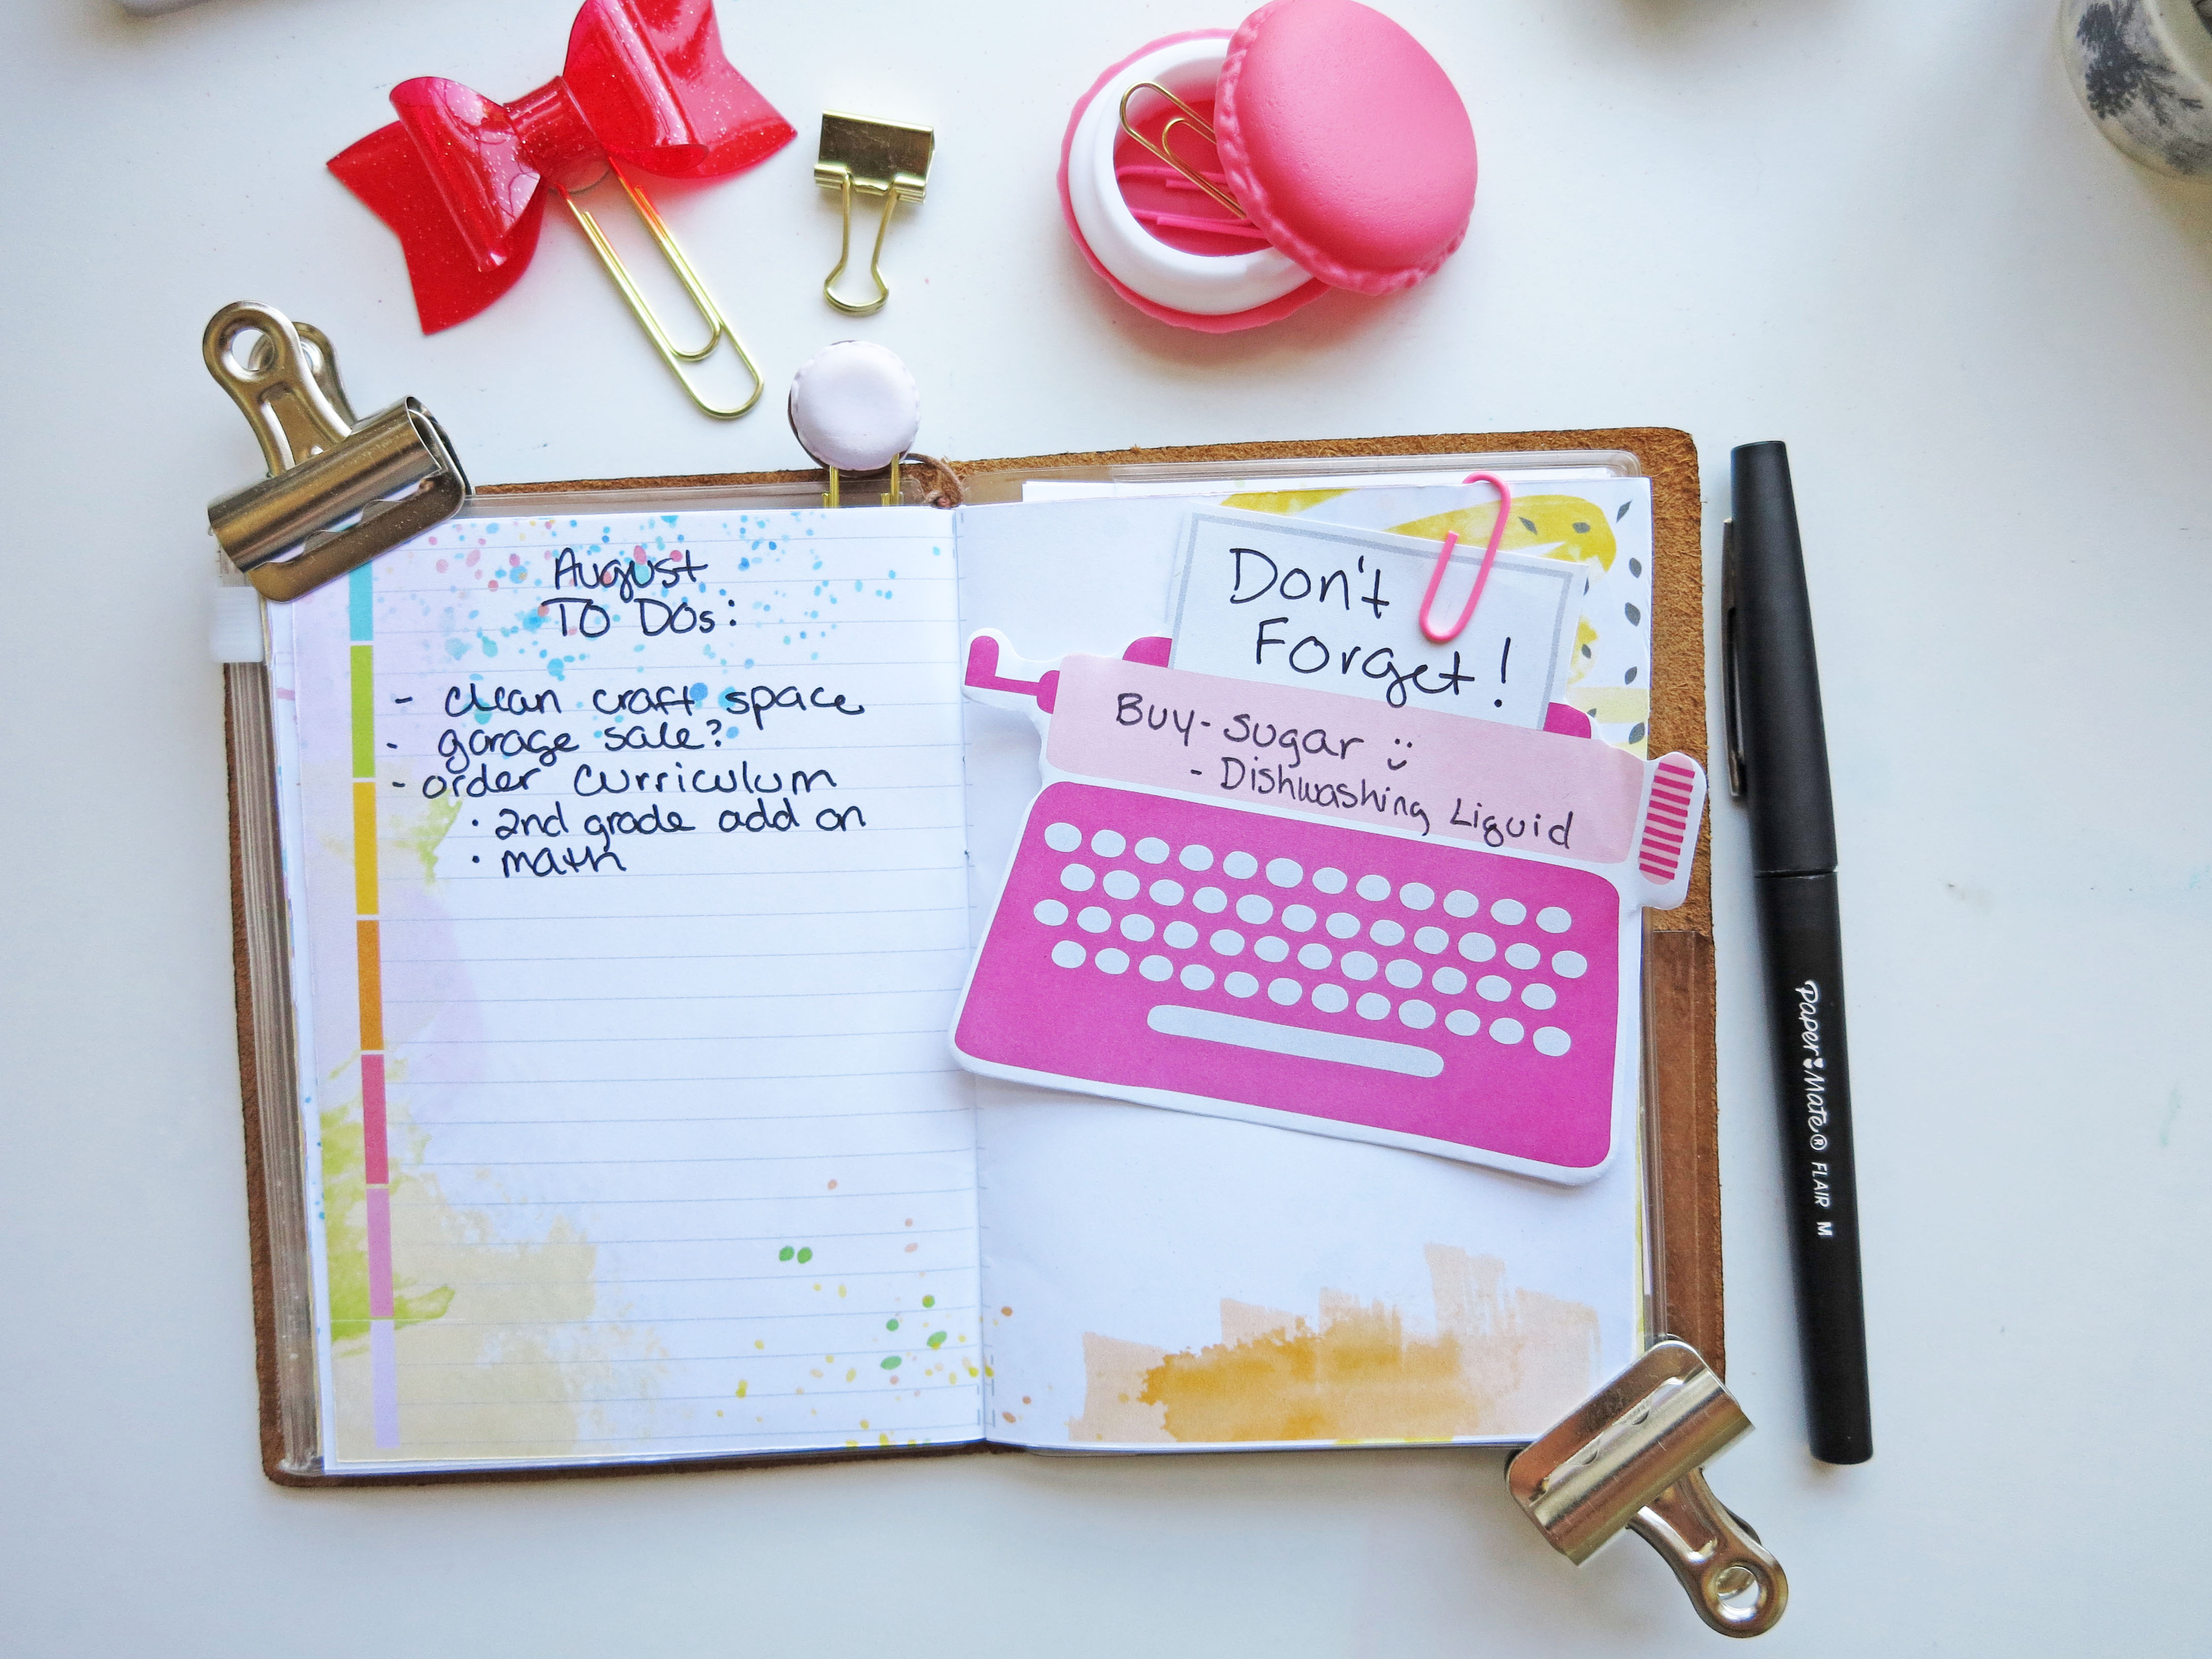 August
TO DOs:
- clean craft space
- garage sale?
- order curriculum
• 2nd grade add on
• math
Don't
Forget!
Buy- sugar
- Dishwashing Liquid
Paper Mate® FLAIR M